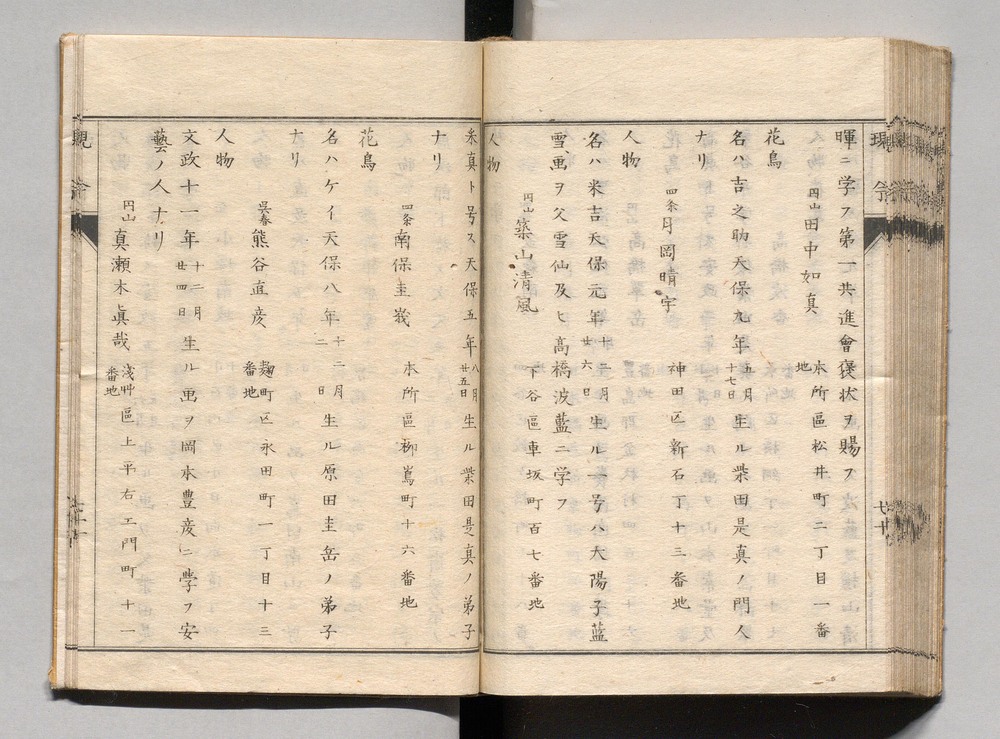 暉ニ学フ第一共進會褒状ヲ賜フ
円山 田中如真 本所區松井町二丁目一番地
花鳥
名ハ吉之助天保九年五月十七日生ル柴田是真ノ門人
ナリ
四条 月岡晴宇 神田区新石丁十三番地
人物
名ハ米吉天保元年十二月廿六日生ル一号ハ大陽子藍
雪画ヲ父雪仙及ヒ高橋波藍ニ学フ
円山 築山清風 下谷區車坂町百七番地
人物
釆真ト号ス天保五年八月廿五日生ル柴田是真ノ弟子
ナリ
四条 南保圭峩 本所區柳嶌町十六番地
花鳥
名ハケイ天保八年十二月二日生ル原田圭岳ノ弟子
ナリ
呉春 熊谷直彦 麹町区永田町一丁目十三番地
人物
文政十一年十二月廿四日生ル画ヲ岡本豊彦ニ學フ安
藝ノ人ナリ
円山 真瀬木眞哉 淺艸區上平右エ門町十一番地